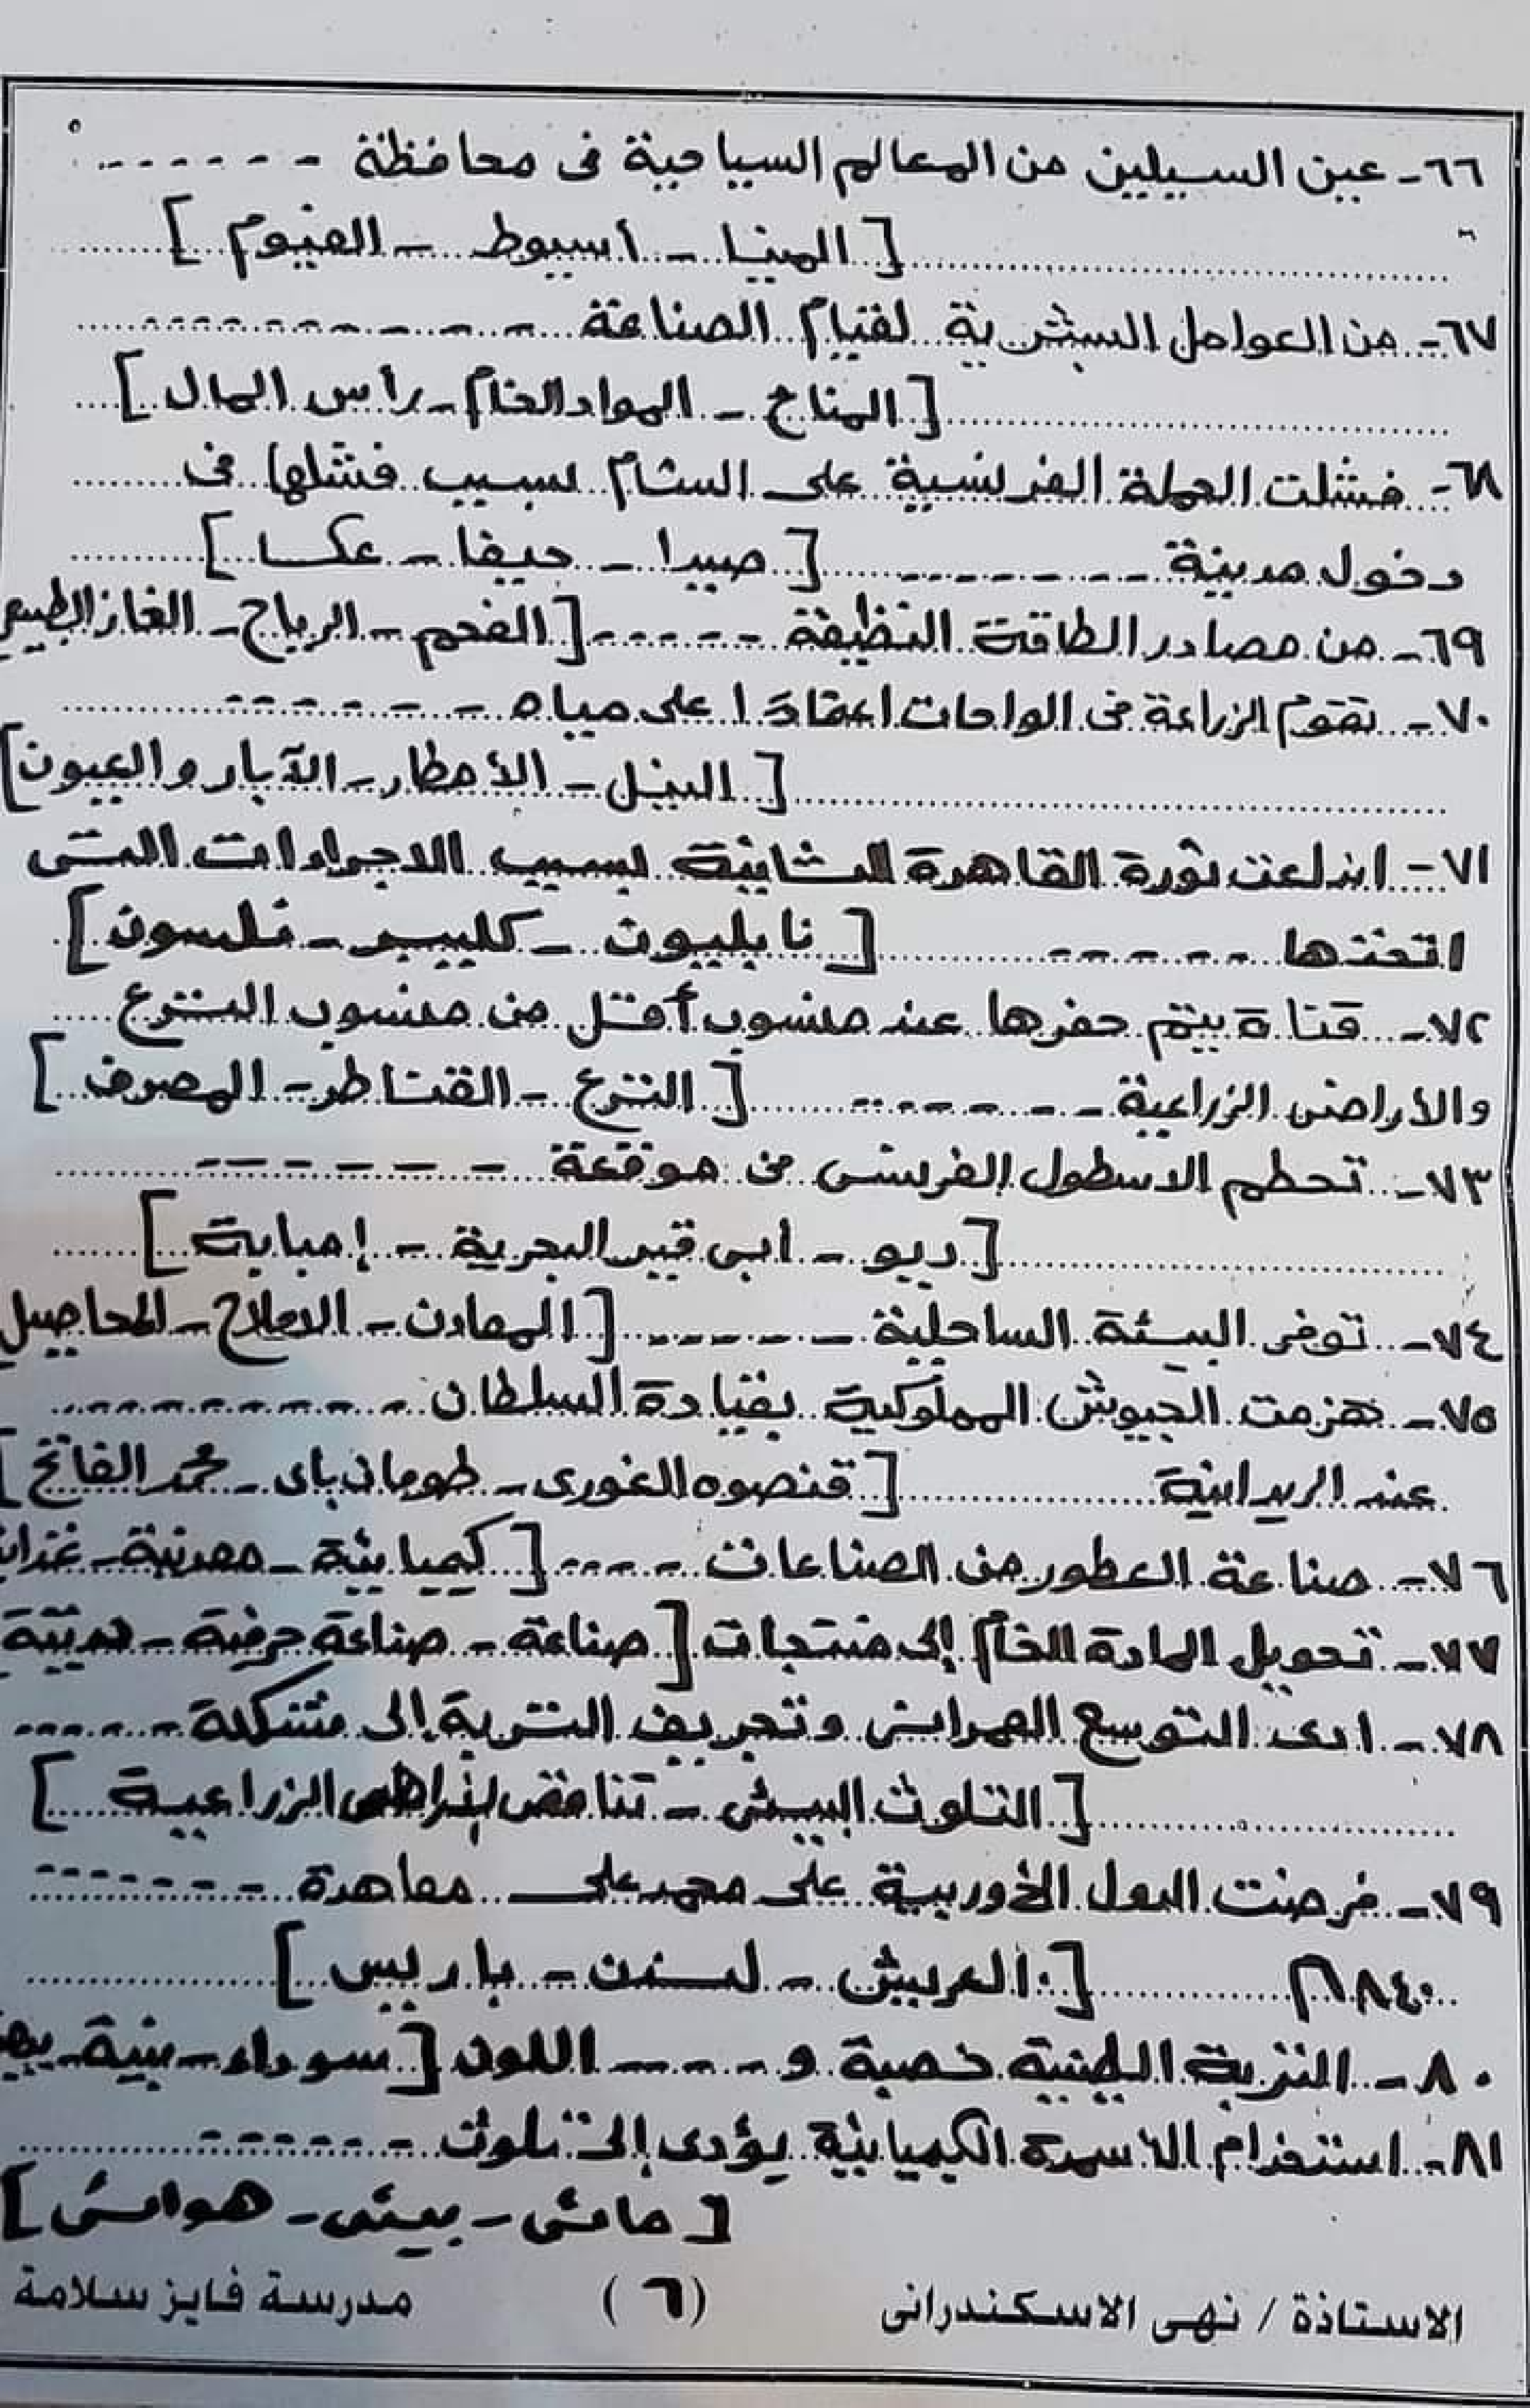 ٦٦- عين السيليين من المعالم السياحية فى محافظة ------
[ المنيا - أسيوط - الفيوم ]
٦٧- من العوامل البشرية لقيام الصناعة ------
[ المناخ - المواد الخام - رأس المال ]
٦٨- فشلت الحملة الفرنسية على الشام بسبب فشلها فى
دخول مدينة ------ [ صيدا - حيفا - عكا ]
٦٩- من مصادر الطاقة النظيفة ------ [ الفحم - الرياح - الغاز الطبيعى
٧٠- تقوم الزراعة فى الواحات اعتمادا على مياه ------
[ النيل - الأمطار - الآبار والعيون ]
٧١- اندلعت ثورة القاهرة الثانية بسبب الاجراءات التى
اتخذها ------ [ نابليون - كليبر - نلسون ]
٧٢- قناة يتم حفرها عند منسوب أقل من منسوب الترع
والأراضى الزراعية ------ [ الترع - القناطر - المصرف ]
٧٣- تحطم الاسطول الفرنسى فى موقعة ------
[ ديو - أبى قير البحرية - إمبابة ]
٧٤- توفر البيئة الساحلية ------ [ المعادن - الاملاح - المحاصيل
٧٥- هزمت الجيوش المملوكية بقيادة السلطان ------
عند الريدانية [ قنصوه الغورى - طومان باى - محمد الفاتح ]
٧٦- صناعة العطور من الصناعات ----- [ كيميائية - معدنية - غذائية
٧٧- تحويل المادة الخام إلى منتجات [ صناعة - صناعة حرفية - حديثة
٧٨- ادى التوسع العمرانى وتجريف التربة إلى مشكلة ------
[ التلوث البيئى - تناقص الأراضى الزراعية ]
٧٩- فرضت الدول الأوربية على محمد على معاهدة ------
١٨٤٠م [ العريش - لندن - باريس ]
٨٠- التربة الطينية خصبة و ----- اللون [ سوداء - بنية -
٨١- استخدام الاسمدة الكيميائية يؤدى إلى تلوث ------
[ مائى - بيئى - هوائى ]
الاستاذة / نهى الاسكندرانى (٦) مدرسة فايز سلامة